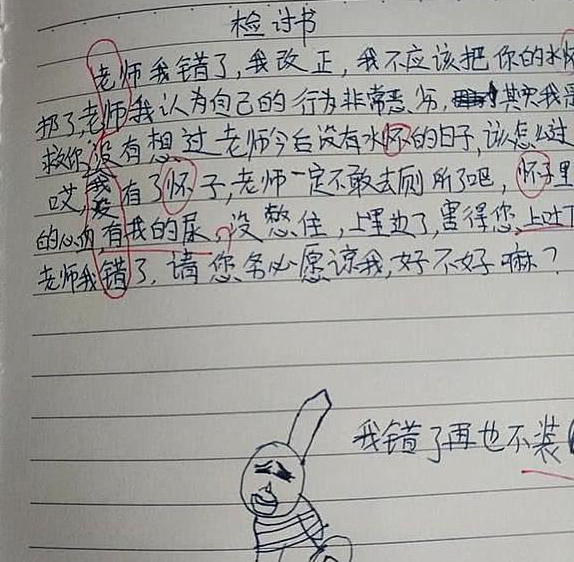 检讨书
老师我错了,我改正,我不应该把你的水怀
扔了,老师我认为自己的行为非常恶劣,其实我是
救你,没有想过老师今后没有水怀的日子,该怎么过
哎,我没有了怀子,老师一定不敢去厕所了吧,怀子里
的 有我的尿,没憋住,上里边了,害得您上吐下
老师我错了,请您务必愿谅我,好不好嘛?
我错了再也不装